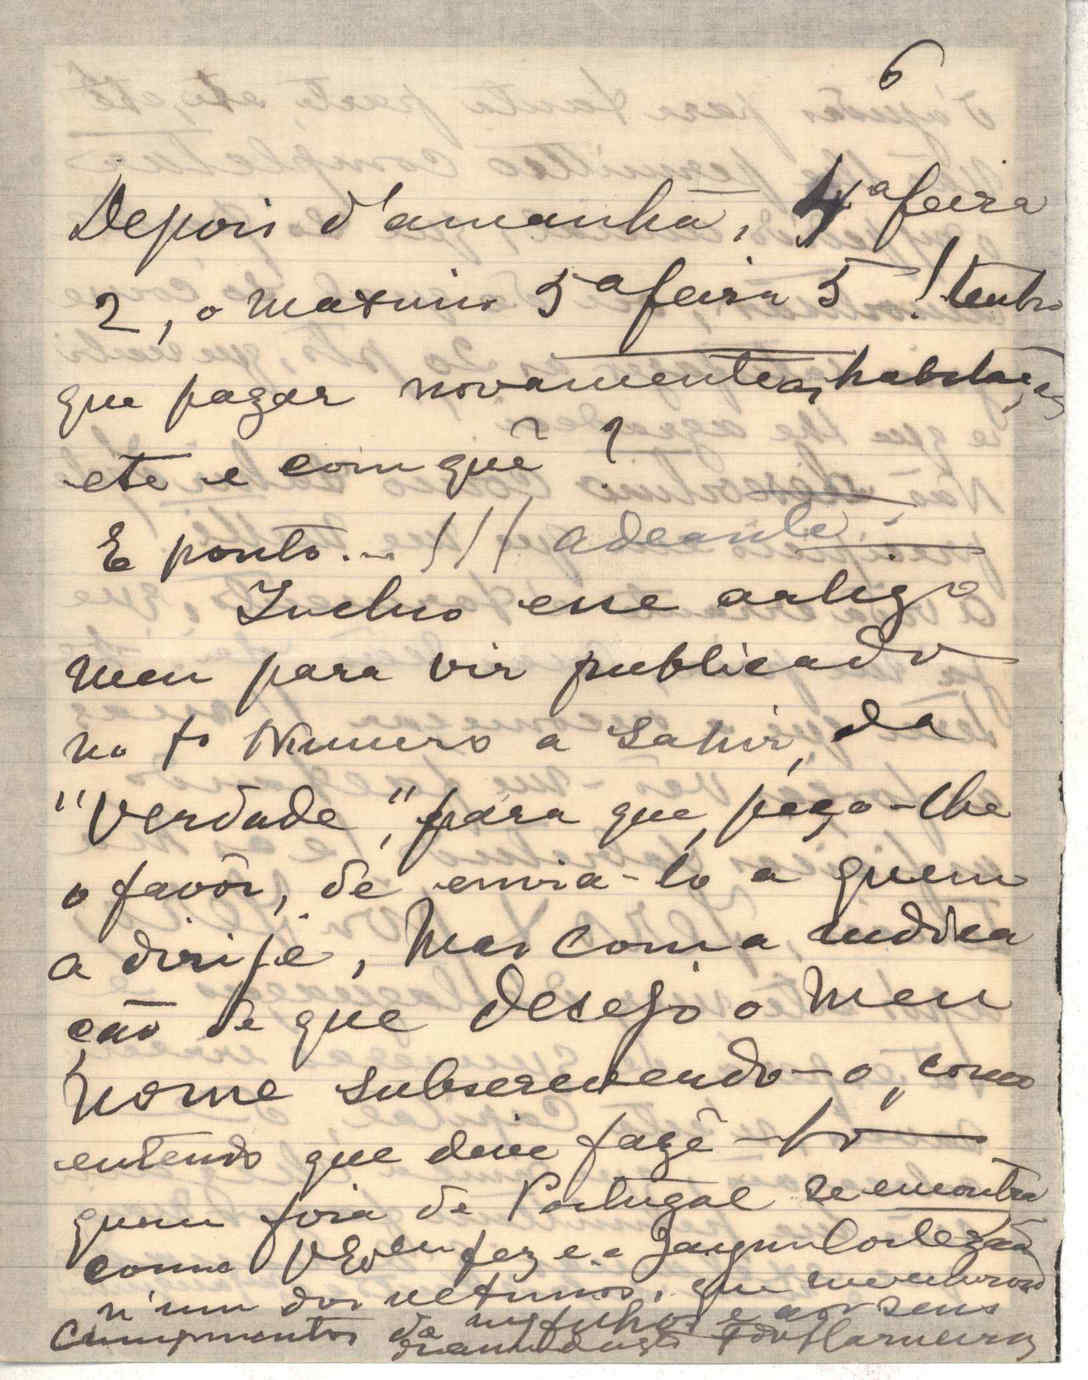 6
Depois d'amanhã, 4ª feira
2, o maximo 5ª feira 5! tenho
que pagar novamente, habitação,
etc e com quê?
E ponto... /// adeante.
Incluo esse artigo
meu para vir publicado
no 1º Numero a sahir, da
"Verdade", para que, peço-lhe
o favôr, de envia-lo a quem
a dirije, mas com a indica
ção de que desejo o meu
nome subscrevendo-o, como
entendo que deve fazê-lo
quem fora de Portugal se encontra
como fez e o Jayme Cortezão
n'um dos ultimos, que
Cumprimentos de meus filhos e aos seus